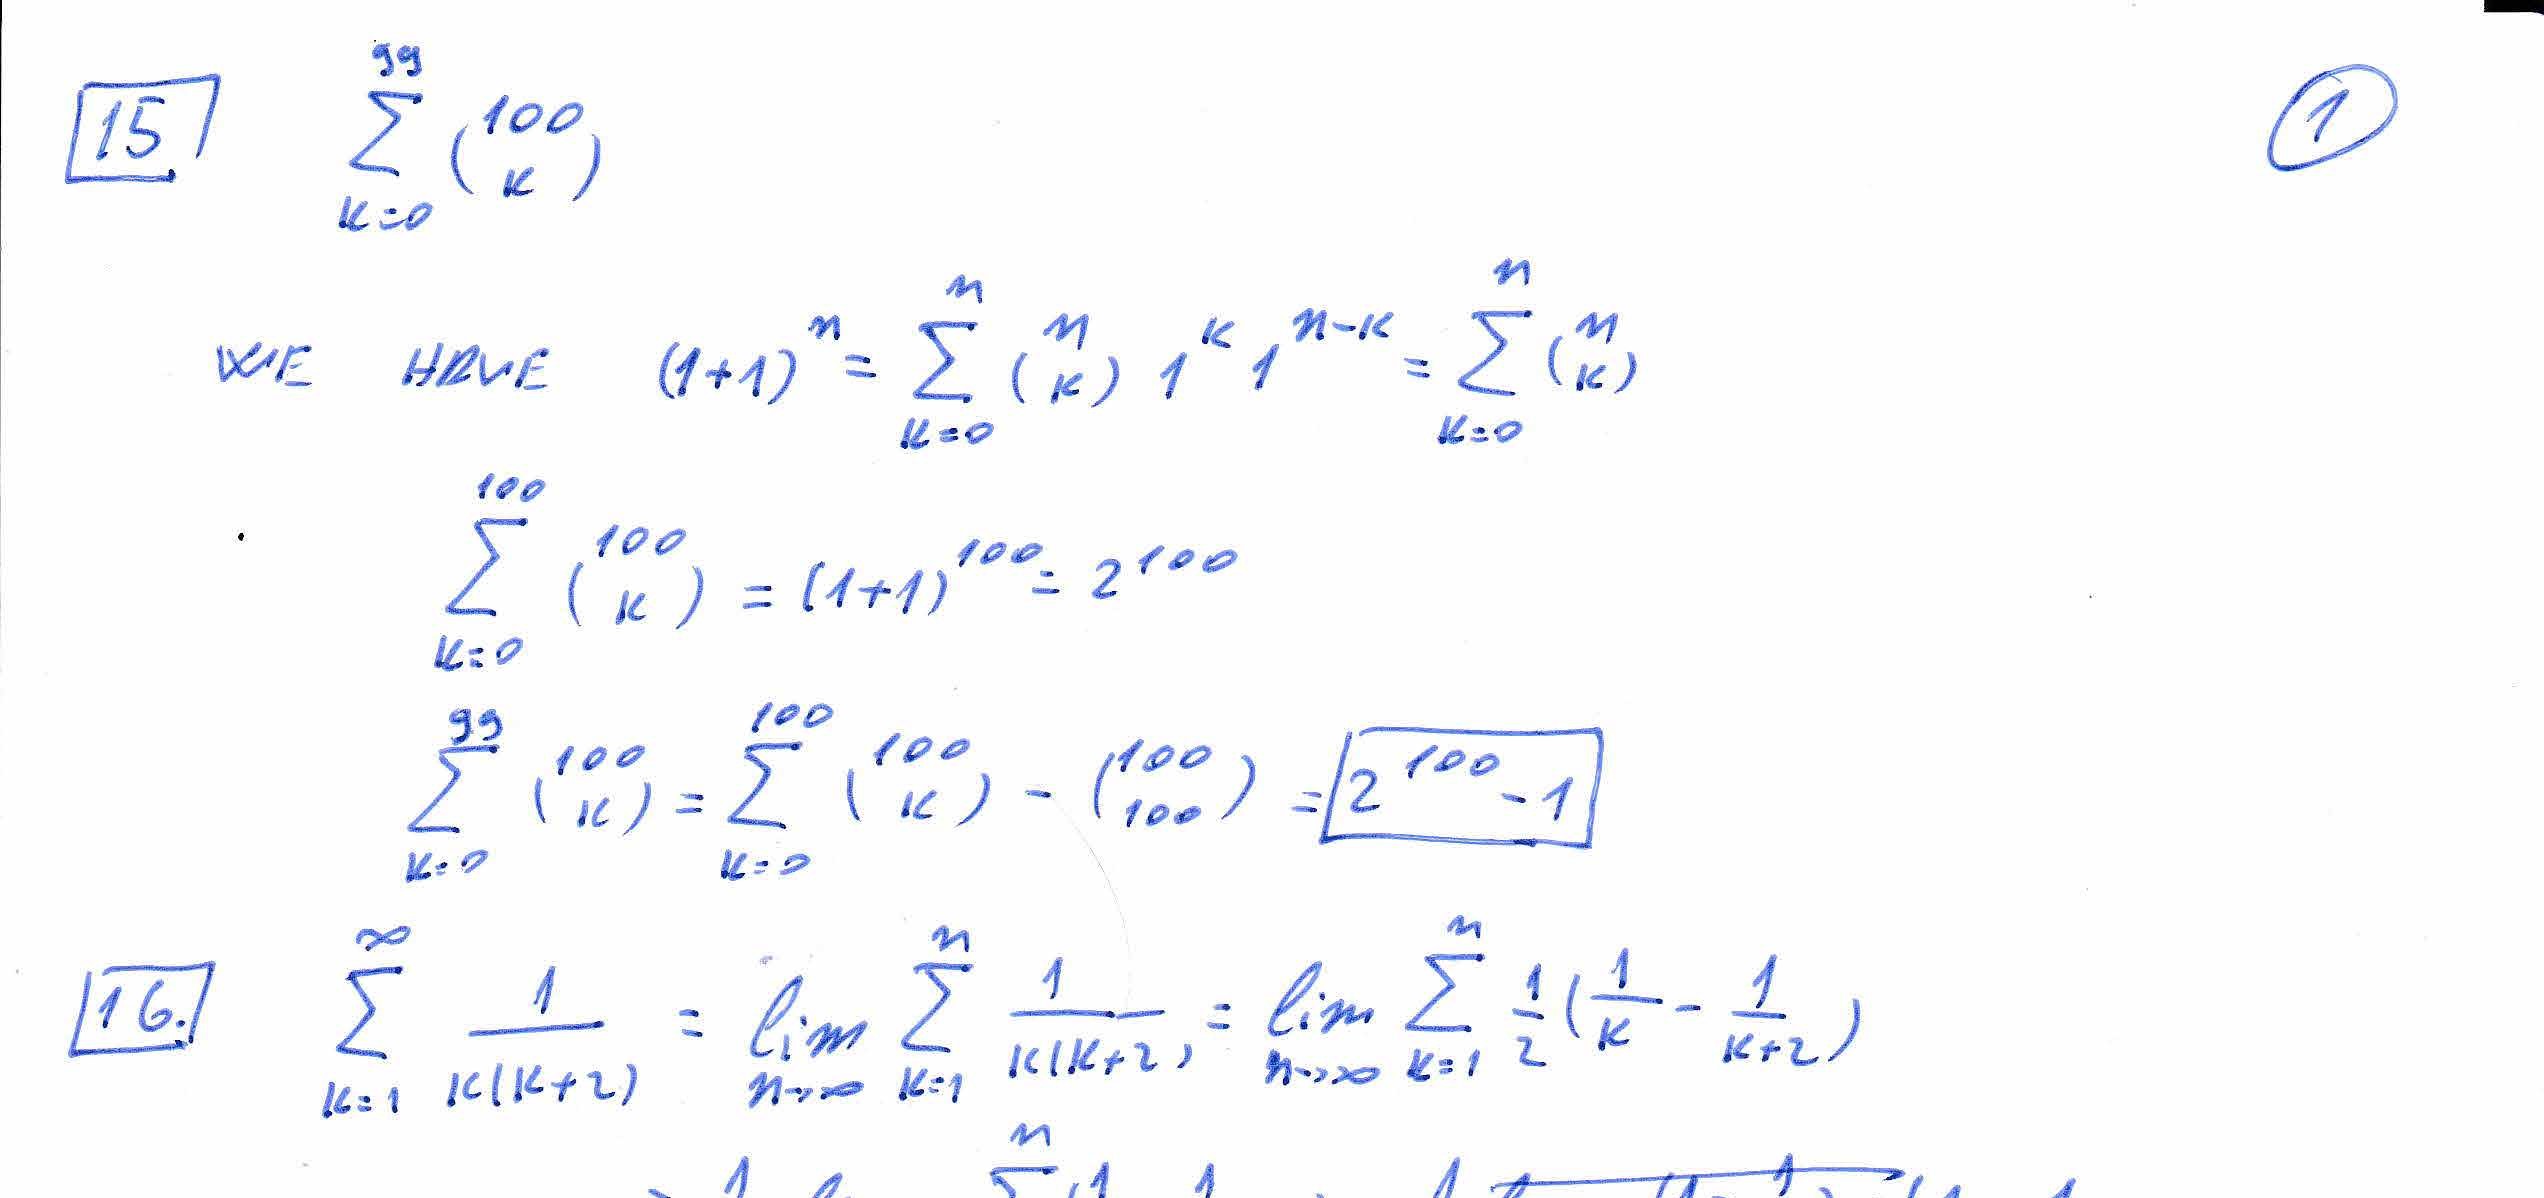 15 $\sum_{k=0}^{99} \binom{100}{k}$ ①
WE HAVE $(1+1)^n = \sum_{k=0}^{n} \binom{n}{k} 1^k 1^{n-k} = \sum_{k=0}^{n} \binom{n}{k}$
$\sum_{k=0}^{100} \binom{100}{k} = (1+1)^{100} = 2^{100}$
$\sum_{k=0}^{99} \binom{100}{k} = \sum_{k=0}^{100} \binom{100}{k} - \binom{100}{100} = \boxed{2^{100} - 1}$
16. $\sum_{k=1}^{\infty} \frac{1}{k(k+2)} = \lim_{n \to \infty} \sum_{k=1}^{n} \frac{1}{k(k+2)} = \lim_{n \to \infty} \sum_{k=1}^{n} \frac{1}{2} \left( \frac{1}{k} - \frac{1}{k+2} \right)$